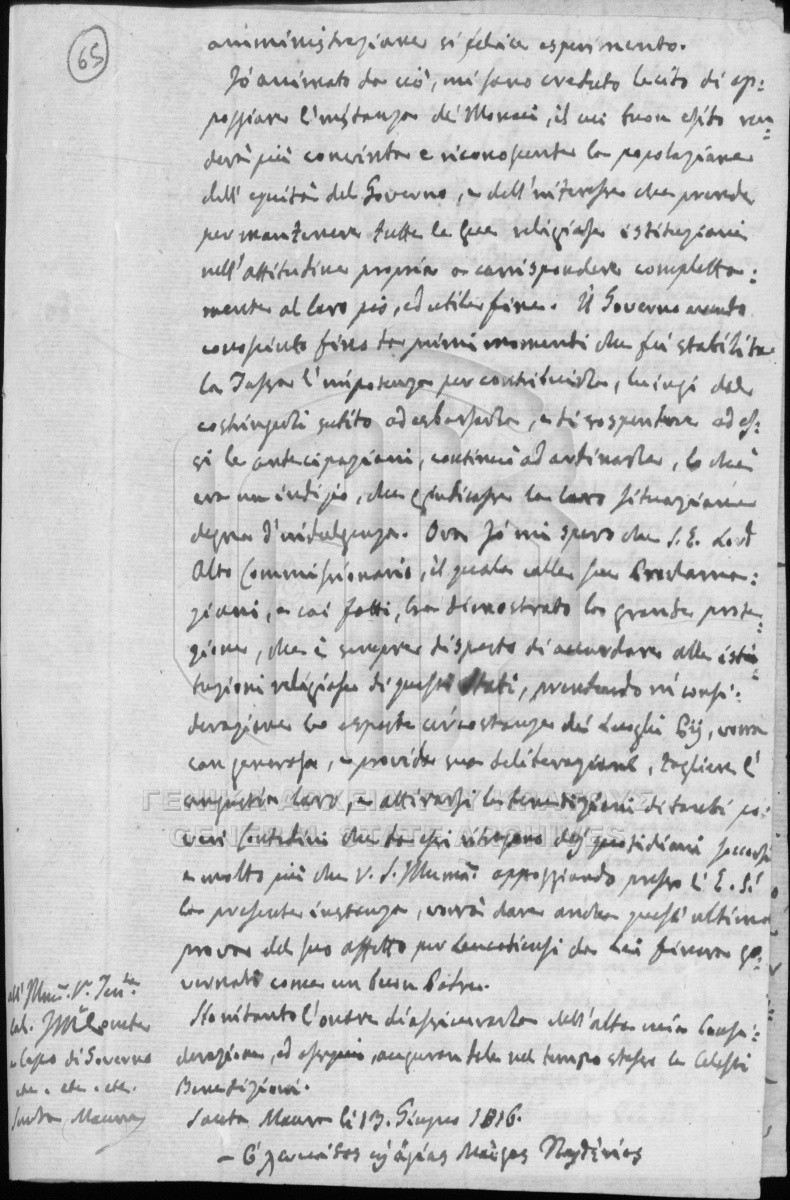 65
amministrazione sì felice esperimento.
Io animato da ciò, mi sono creduto lecito di ap:
poggiare l'instanza de' Monaci, il cui buon esito ren:
derà più convinta e riconoscente la popolazione
dell'equità del Governo, e dell'interesse che prende
per mantenere tutte le sue religiose istituzioni
nell'attitudine propria a corrispondere completta:
mente al loro pio, ed utile fine. Il Governo avendo
conosciuto fino da primi momenti che fù stabilita
la Tassa l'impotenza per contribuirla, lungi dal
costringerli subito ad esborsarla, e di sospendere ad es:
si le antecipazioni, continuò ad ordinarle, lo che
era un indizio, che giudicasse la loro situazione
degna d'indulgenza. Ora Io mi spero che S. E. Lord
Alto Commissionario, il quale colle sue Proclama:
zioni, e coi fatti, ha dimostrato la grande prote:
zione, che è sempre disposto di accordare alle isti:
tuzioni religiose di questi Stati, prendendo in consi:
derazione le esposte circostanze dei Luoghi Pij, vorrà
con generosa, e provida sua deliberazione, togliere l'
angustia loro, e attirarsi le benedizioni di tanti po:
veri Contadini che da essi ritrovano dei quotidiani soccorsi
e molto più che V. S. Illuma. appoggiando presso l'E. S.
la presente instanza, vorrà dare anche quest'ultima
prova del suo affetto per Leucadiensi da Lei finora go:
vernati come un buon Padre.
Ho intanto l'onore di assicurarla dell'alta mia Consi:
derazione, ed ossequio, augurandole nel tempo stesso le Celesti
Benedizioni.
Santa Maura li 13. Giugno 1816.
all'Illmo. Sr. Ten:te
Col.
e Capo di Governo
etc. etc. etc.
Santa Maura
– Ὁ Λευκάδος καὶ ἁγίας Μαύρας Παρθένιος
ΓΕΝΙΚΑ ΑΡΧΕΙΑ ΤΟΥ ΚΡΑΤΟΥΣ
GENERAL STATE ARCHIVES